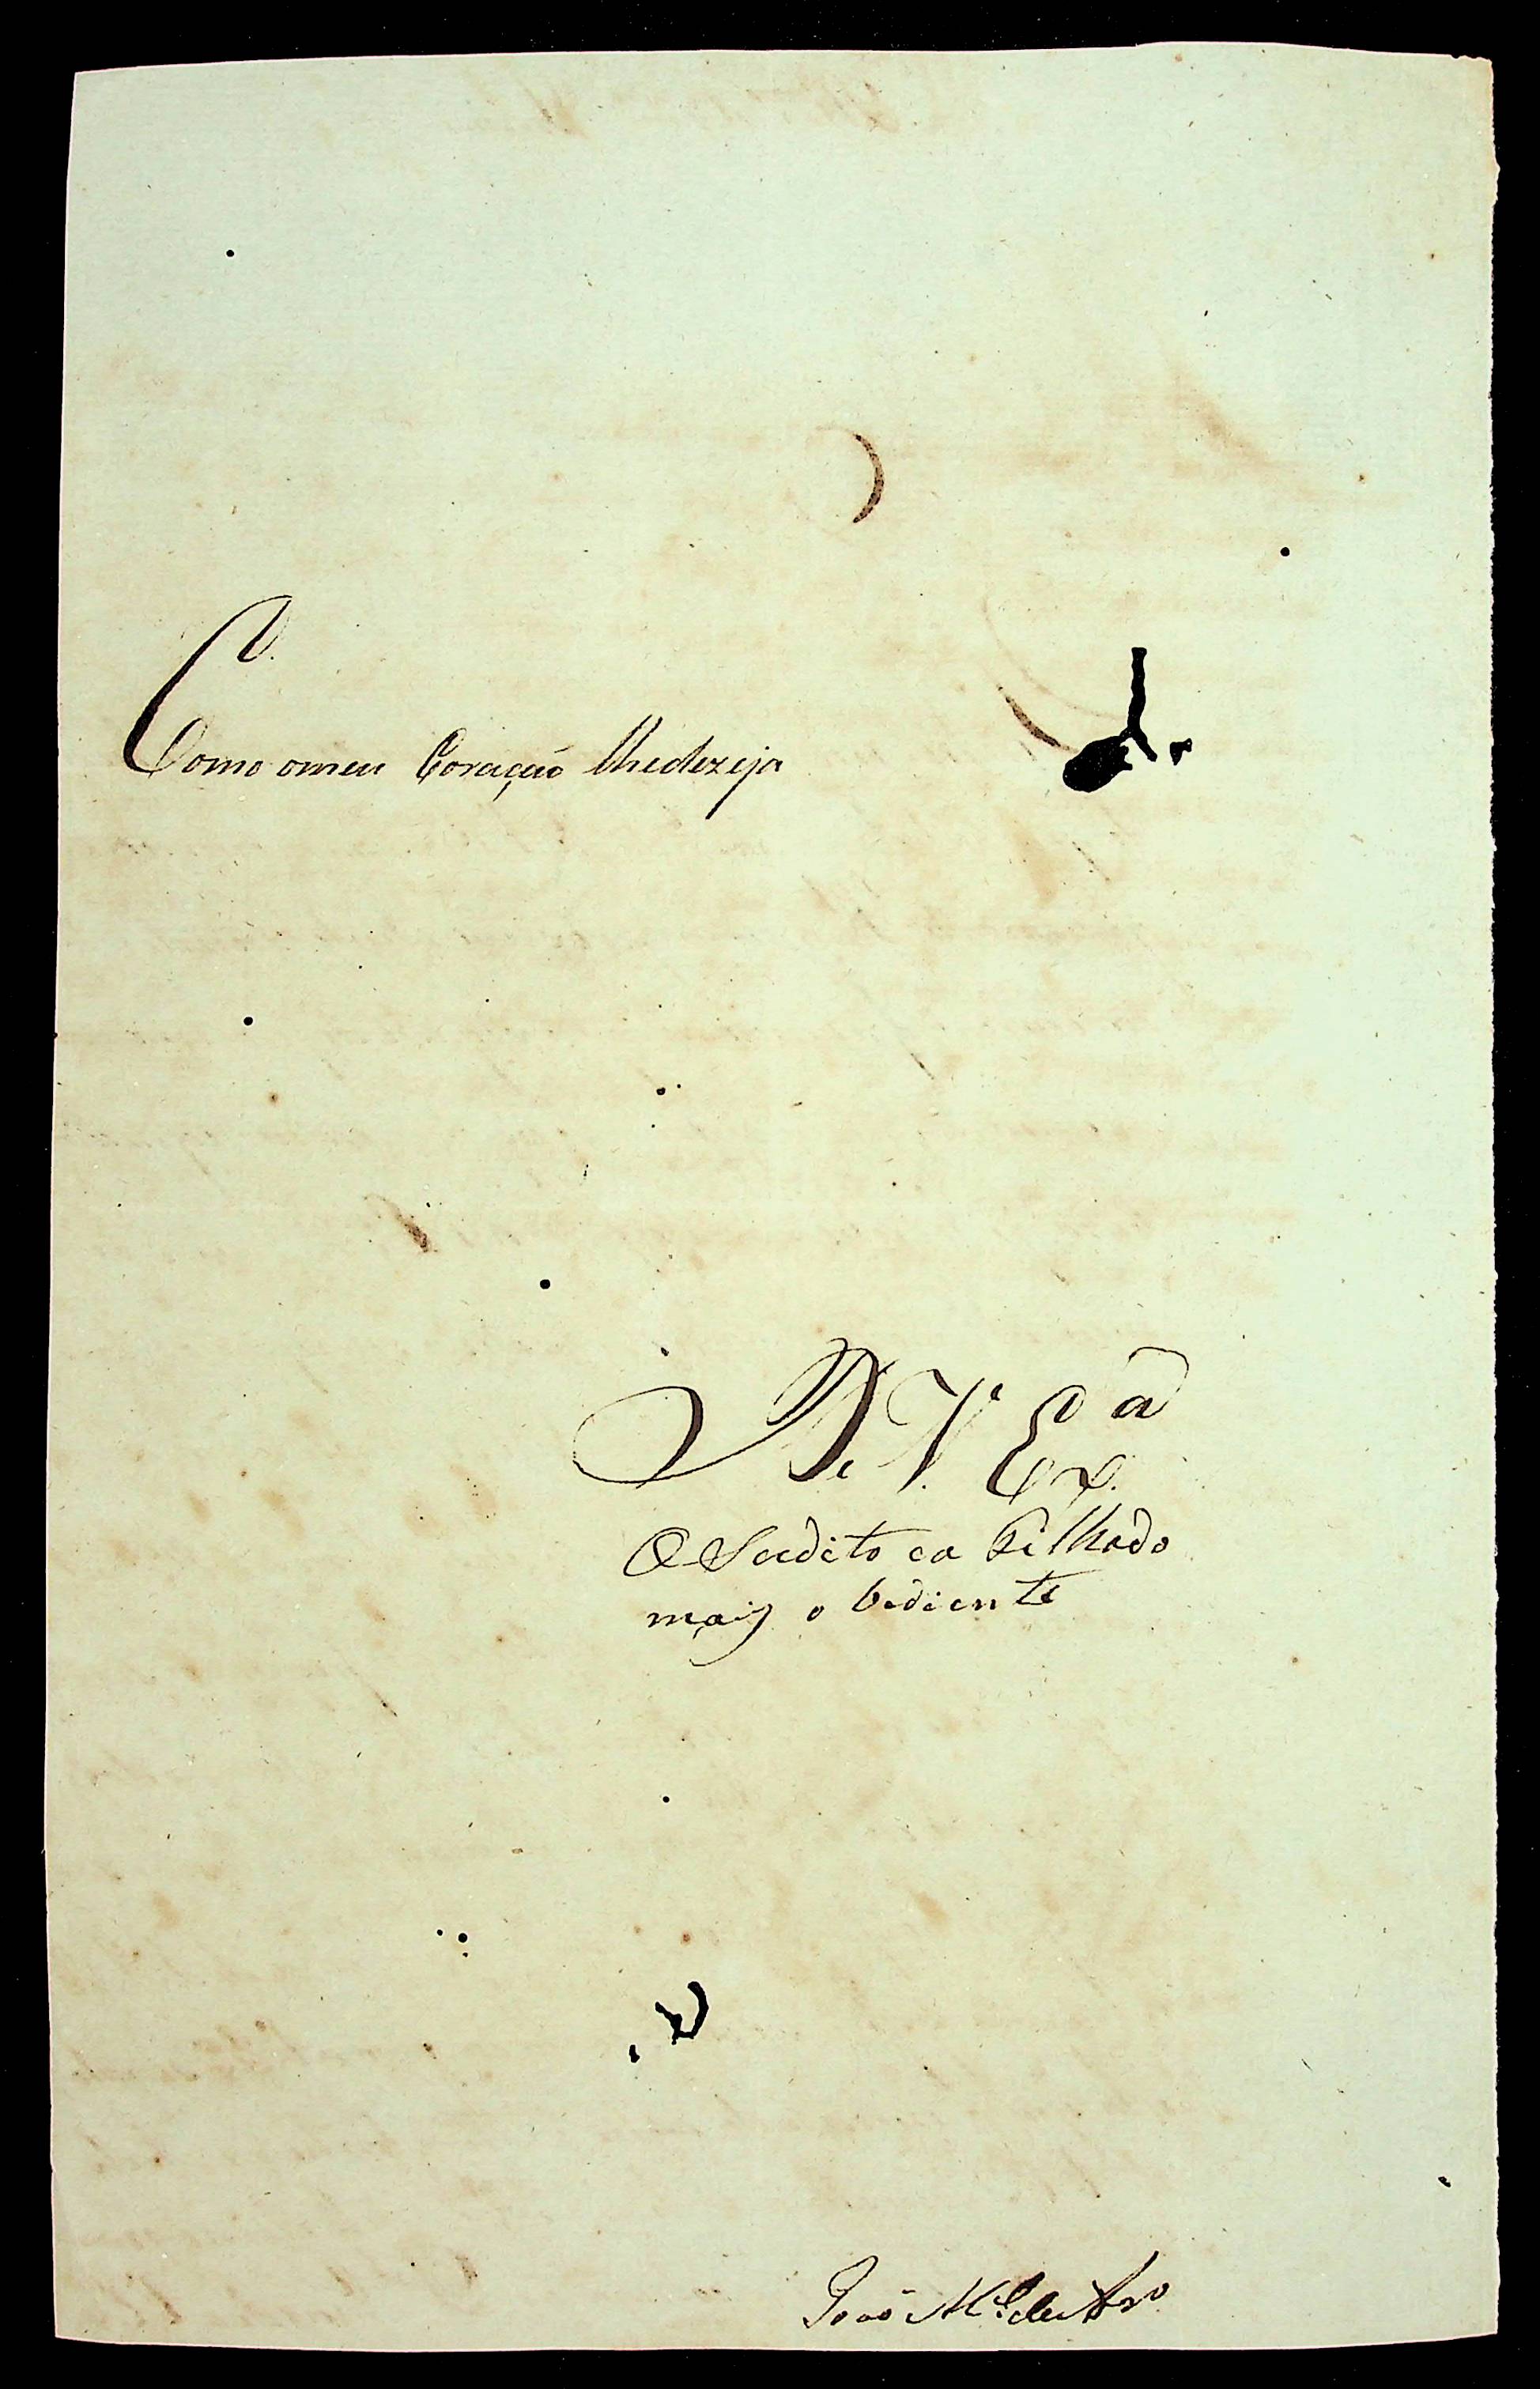 Como omeu Coração lhedezeja
De V. Ex.ª
O Sudito ea Filhado
mais o bediente
João M.el da